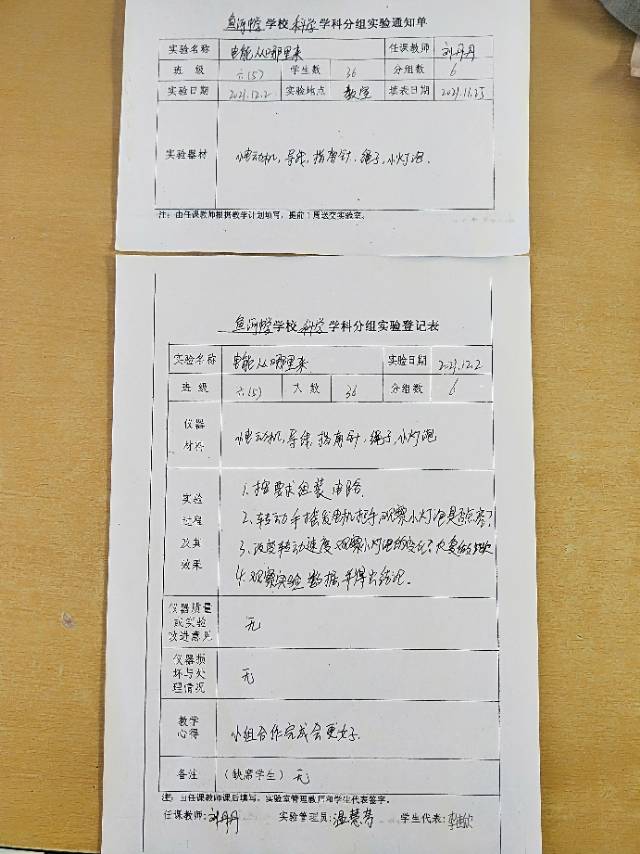 鱼河中学学校科学学科分组实验通知单
实验名称 电能从哪里来 任课教师 刘丹丹
班 级 六(5) 学生数 36 分组数 6
实验日期 2021.12.2 实验地点 教室 填表日期 2021.11.25
实验器材 小电动机,导线,指南针,绳子,小灯泡.
注:由任课教师根据教学计划填写,提前1周送交实验室。
鱼河中学学校科学学科分组实验登记表
实验名称 电能从哪里来 实验日期 2021.12.2
班 级 六(5) 人 数 36 分组数 6
仪器
材料
小电动机,导线,指南针,绳子,小灯泡
实验
过程
及其
效果
1.按要求组装电路.
2.转动手摇发电机把手,观察小灯泡是否点亮?
3.改变转动速度观察小灯泡的变化?反复做
4.观察实验数据,并得出结论.
仪器质量
或实验
改进意见
无
仪器损
坏与处
理情况
无
教学
心得
小组合作完成会更好.
备注 (缺席学生) 无
注:由任课教师课后填写,实验室管理教师和学生代表签字。
任课教师:刘丹丹 实验管理员:温慧芳 学生代表: